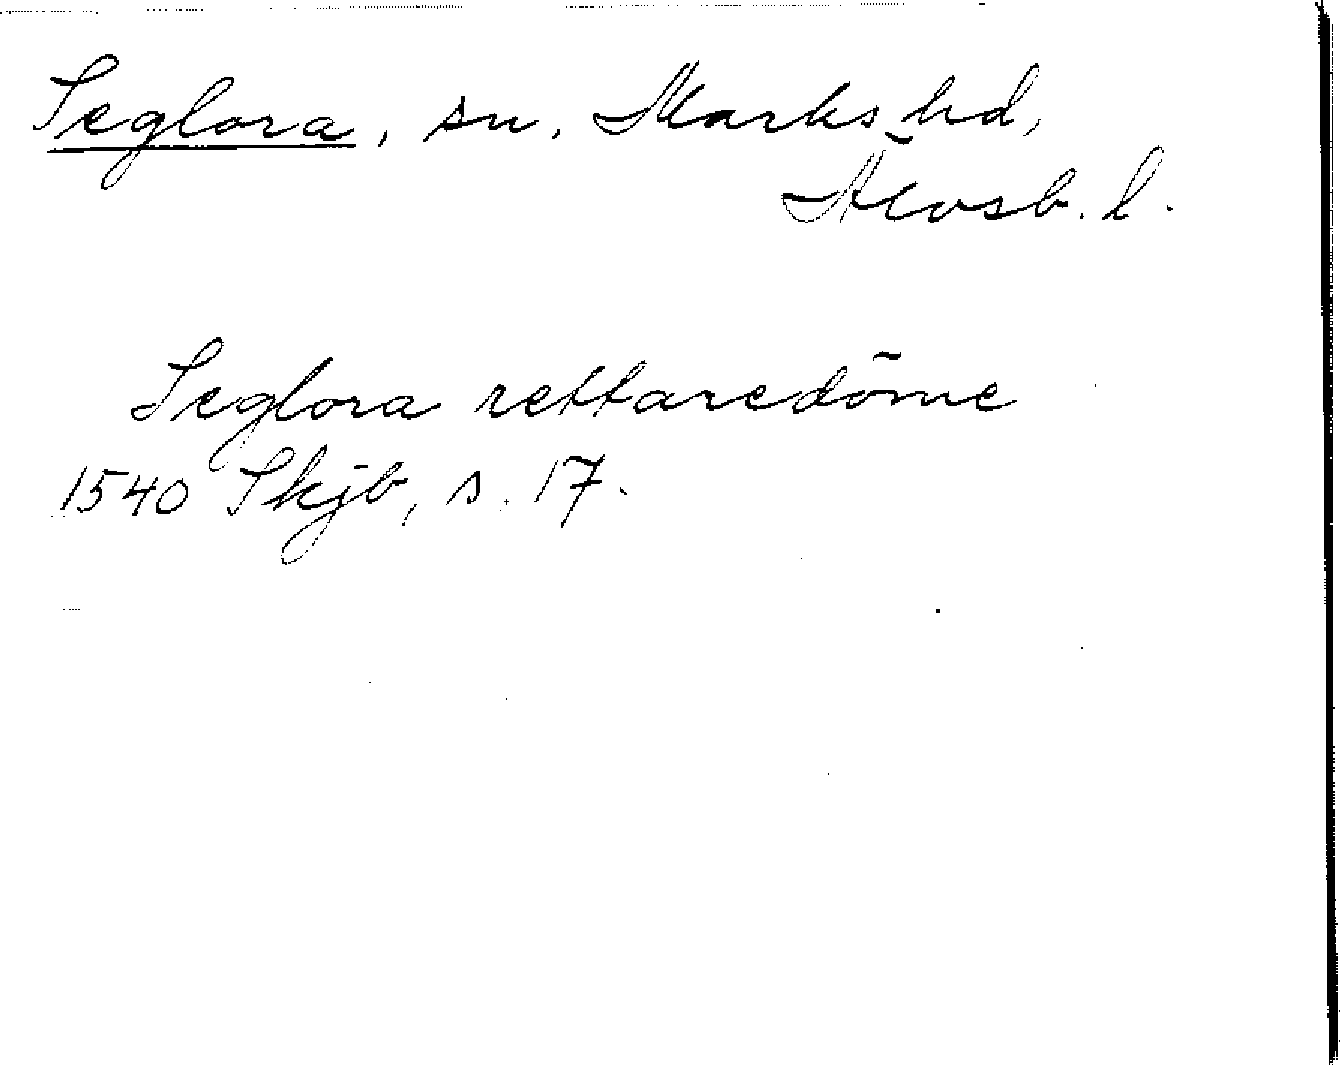 Seglora, sn, Marks hd,
Älvsb. l.
Seglora rettaredöme
1540 Skjb, s. 17.